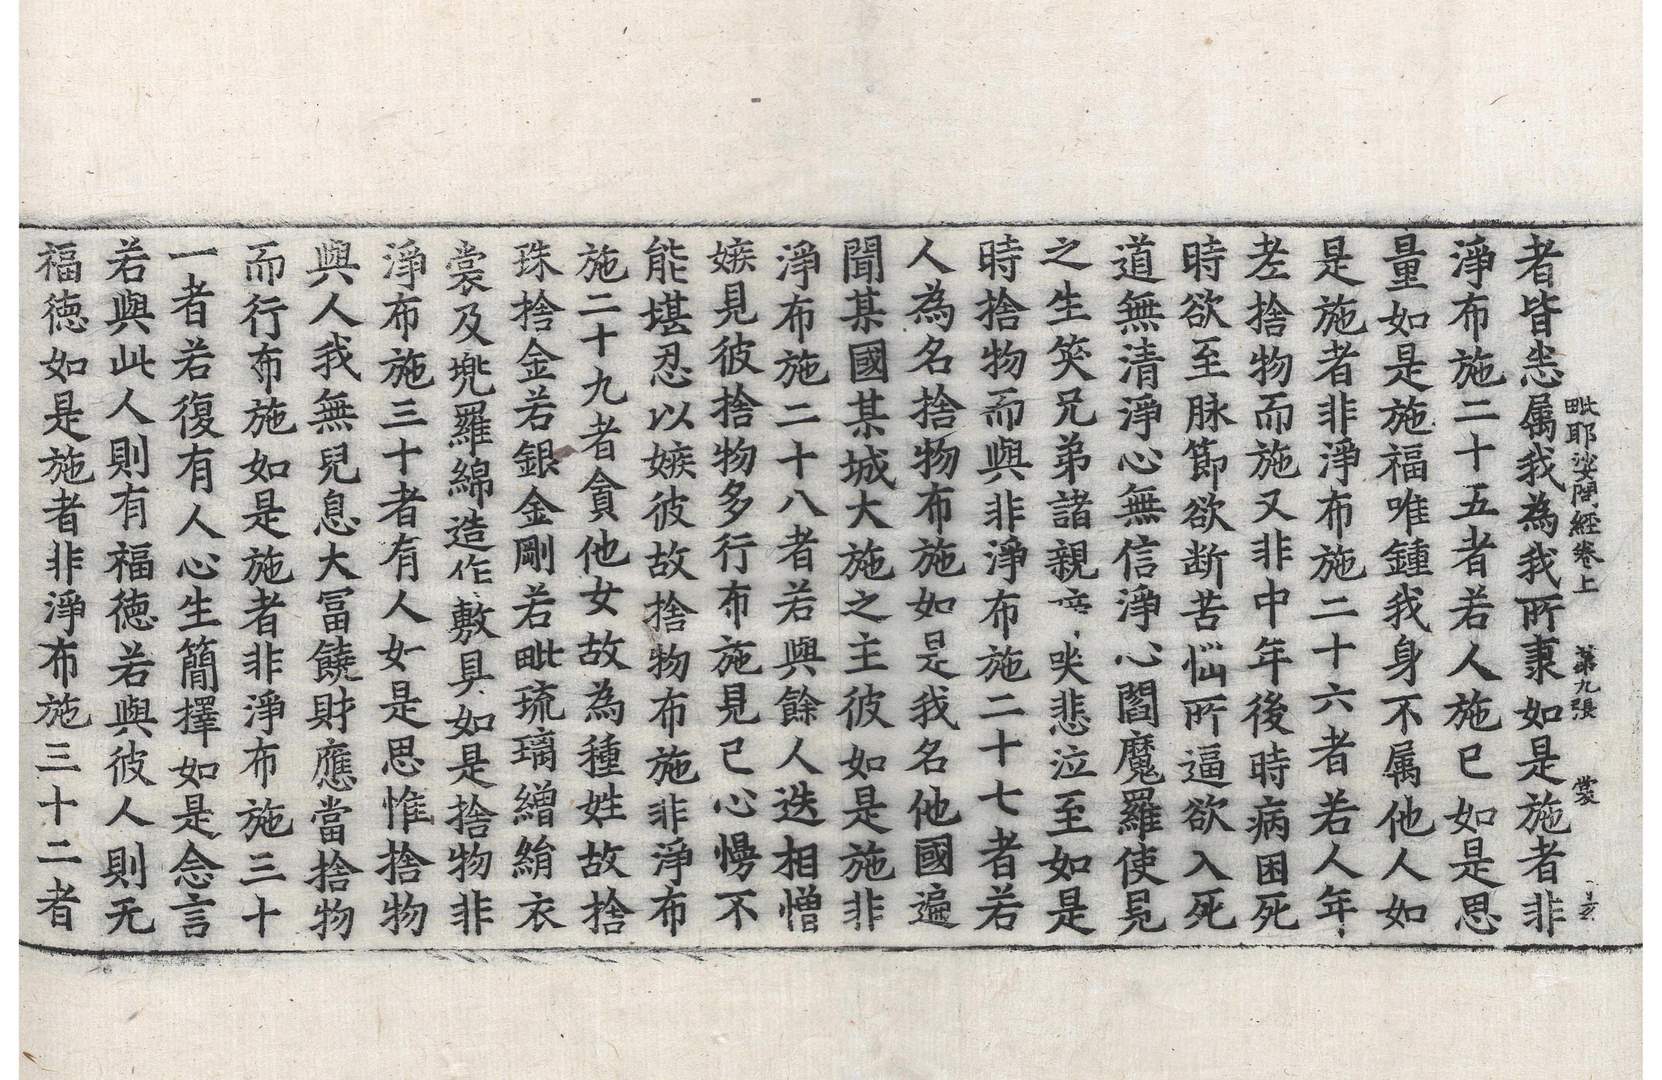 毗耶娑問經卷上 第九張 裳
者皆悉属我為我所稟如是施者非
淨布施二十五者若人施已如是思
量如是施福唯鍾我身不属他人如
是施者非淨布施二十六者若人年
老捨物而施又非中年後時病困死
時欲至脉節欲断苦惱所逼欲入死
道無清淨心無信淨心閻魔羅使見
之生笑兄弟諸親 啼哭悲泣至如是
時捨物而與非淨布施二十七者若
人為名捨物布施如是我名他國遍
聞某國某城大施之主彼如是施非
淨布施二十八者若與餘人迭相憎
嫉見彼捨物多行布施見已心慢不
能堪忍以嫉彼故捨物布施非淨布
施二十九者貪他女故為種姓故捨
珠捨金若銀金剛若毗琉璃繒絹衣
裳及兠羅綿造作敷具如是捨物非
淨布施三十者有人如是思惟捨物
與人我無兒息大冨饒財應當捨物
而行布施如是施者非淨布施三十
一者若復有人心生簡擇如是念言
若與此人則有福德若與彼人則无
福德如是施者非淨布施三十二者